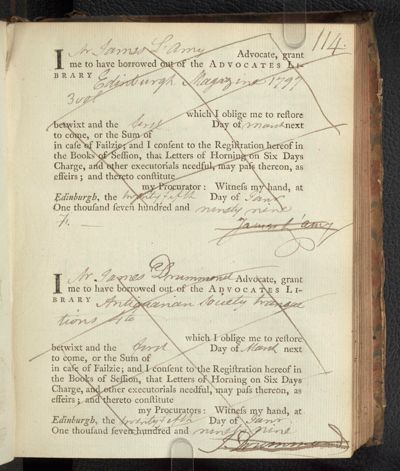 114.
I Mr James L'Amy Advocate, grant
me to have borrowed out of the ADVOCATES LI-
BRARY Edinburgh Magazine 1797
3 vols
which I oblige me to reſtore
betwixt and the Day of March next
to come, or the Sum of
in caſe of Failzie; and I conſent to the Regiſtration hereof in
the Books of Seſſion, that Letters of Horning on Six Days
Charge, and other executorials needful, may paſs thereon, as
effeirs; and thereto conſtitute
my Procurator: Witneſs my hand, at
Edinburgh, the twenty fifth Day of Janr
One thouſand ſeven hundred and ninety nine
James L'amy
I Mr James Drummond Advocate, grant
me to have borrowed out of the ADVOCATES LI-
BRARY Antiquarian Society transac
tions 4to
which I oblige me to reſtore
betwixt and the Day of March next
to come, or the Sum of
in caſe of Failzie; and I conſent to the Regiſtration hereof in
the Books of Seſſion, that Letters of Horning on Six Days
Charge, and other executorials needful, may paſs thereon, as
effeirs; and thereto conſtitute
my Procurators: Witneſs my hand, at
Edinburgh, the twenty fifth Day of Janr
One thouſand ſeven hundred and ninety nine
J. Drummond